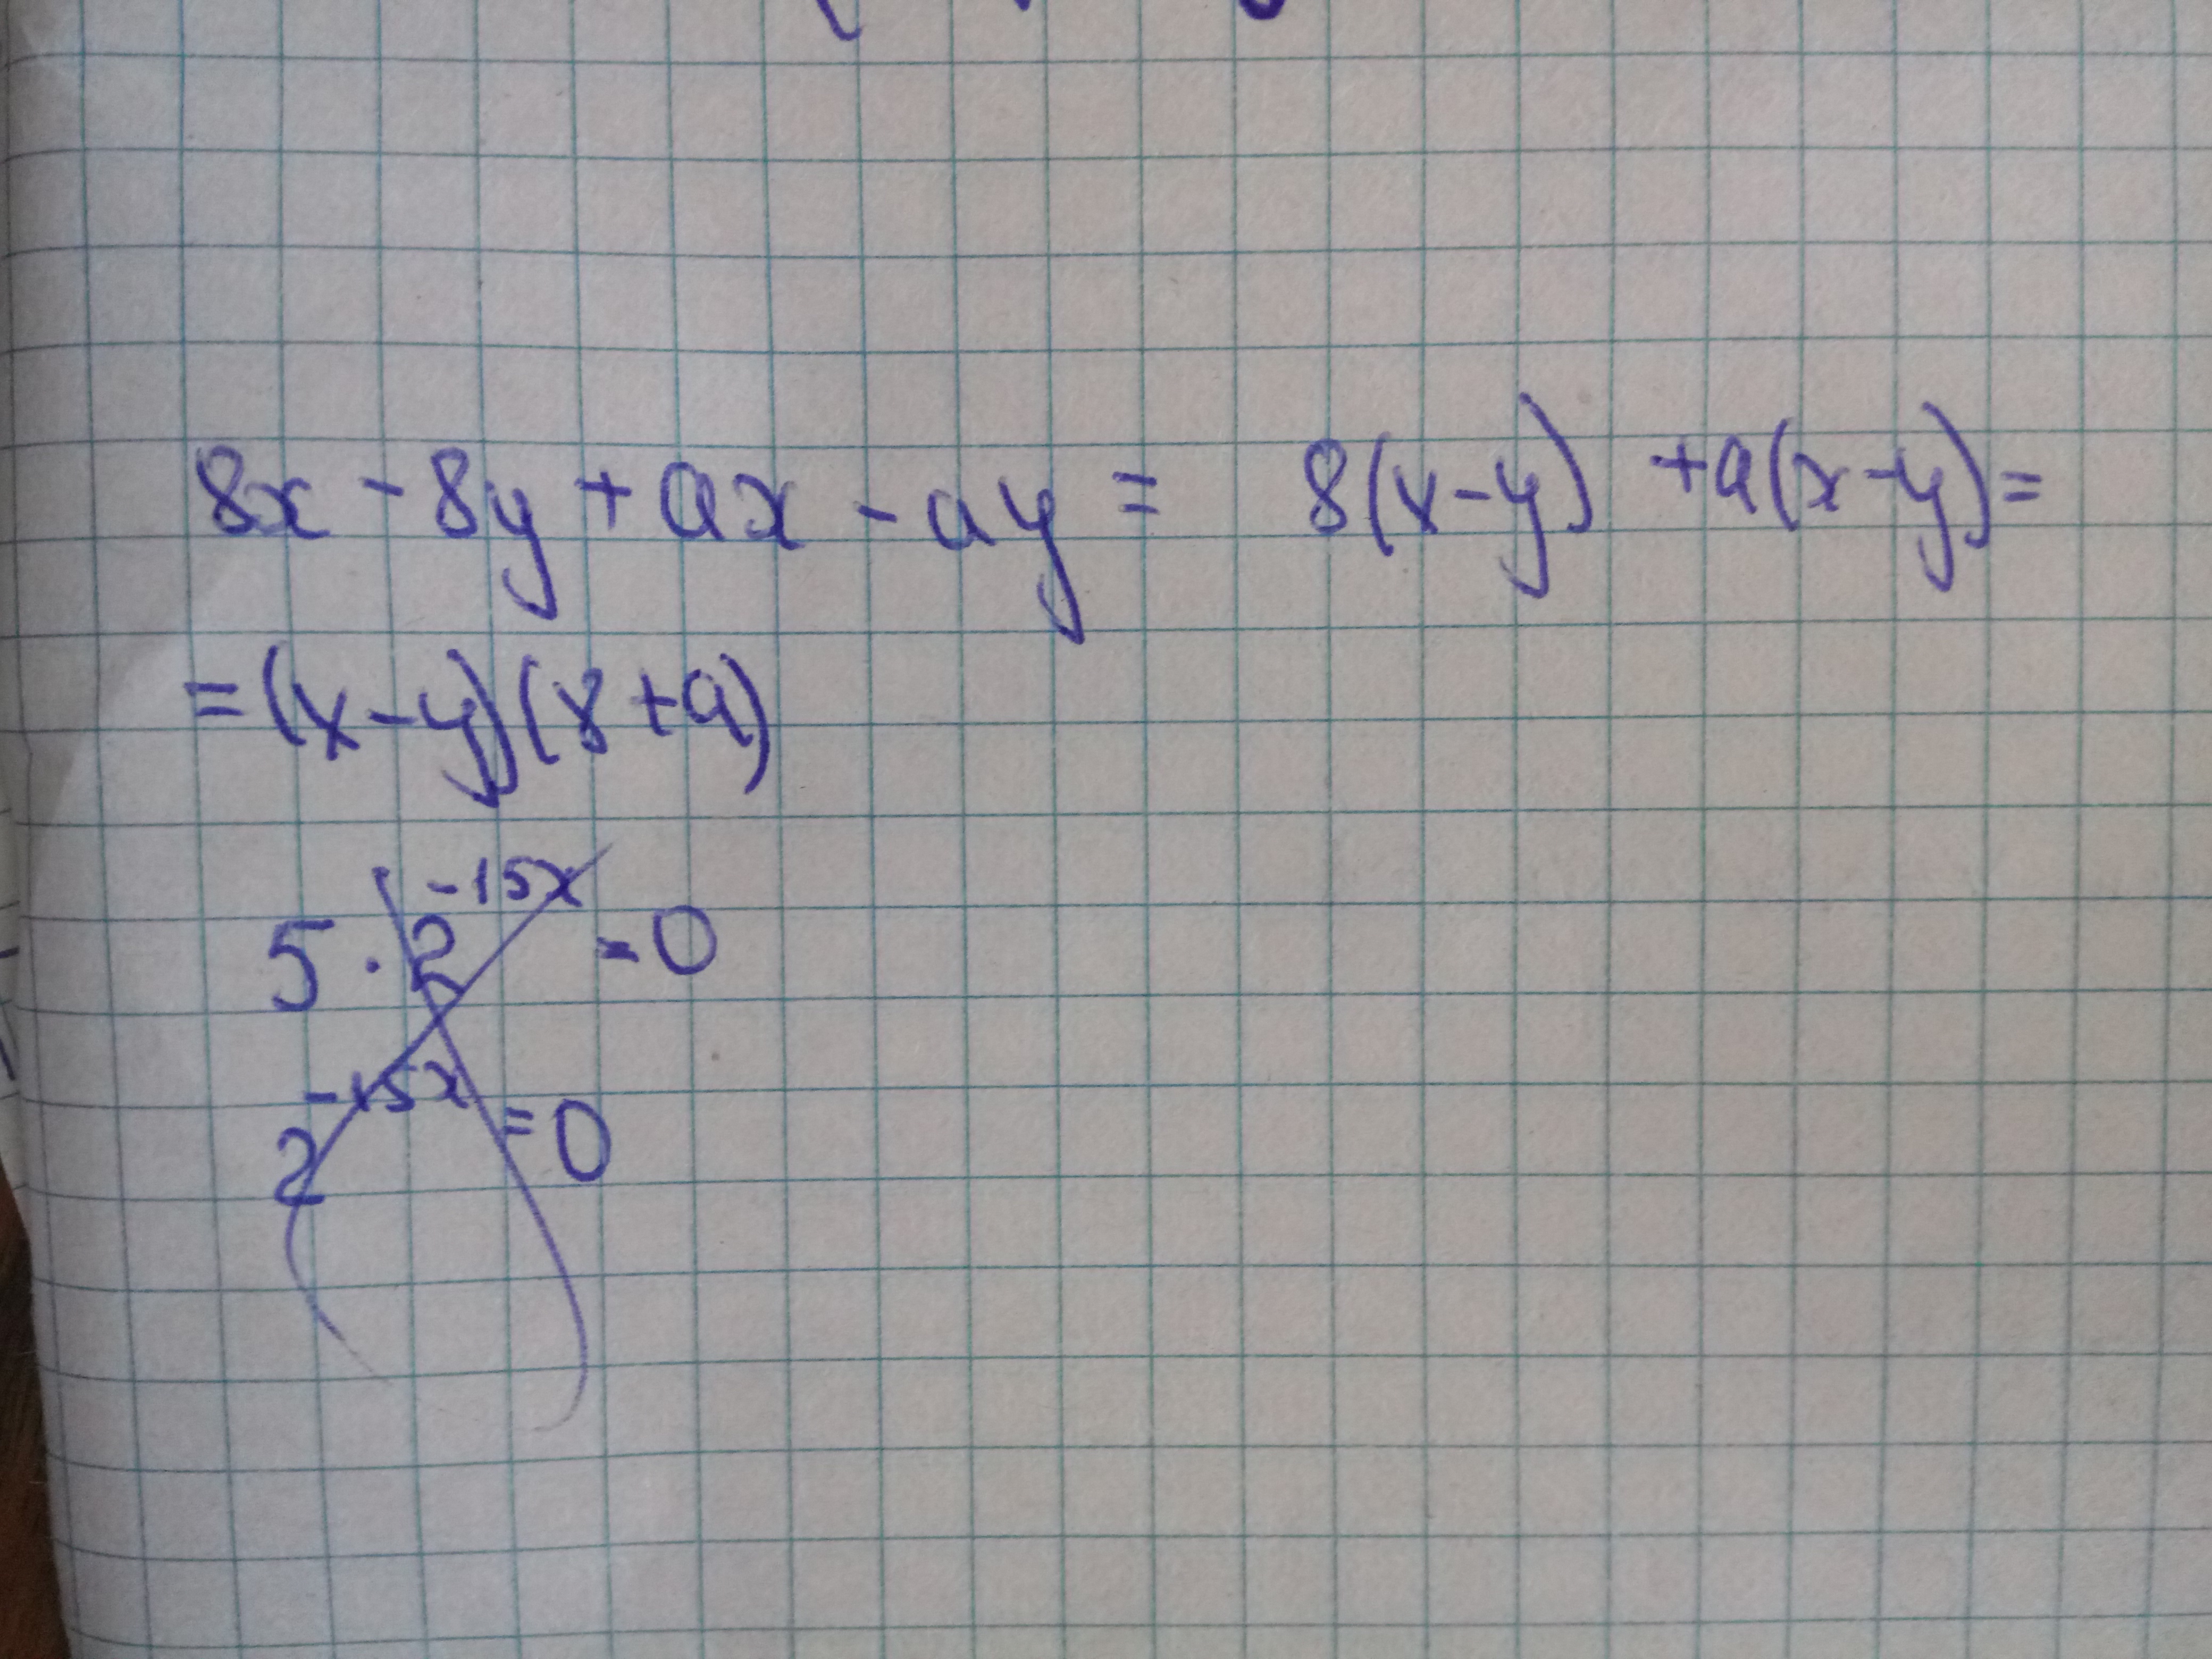 8x - 8y + ax - ay = 8(x-y) + a(x-y) =
= (x-y)(8+a)
5 · 2^{-15x} = 0
2^{-15x} = 0